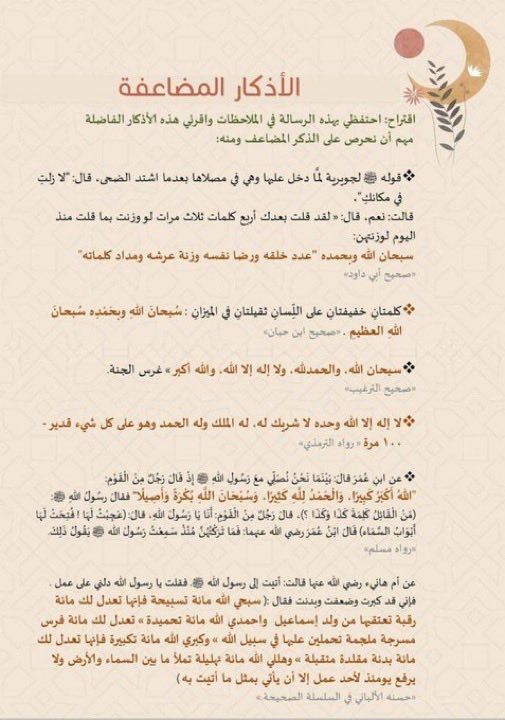 الأذكار المضاعفة
اقتراح: احتفظي بهذه الرسالة في الملاحظات واقرئي هذه الأذكار الفاضلة
مهم أن نحرص على الذكر المضاعف ومنه:
❖قوله ﷺ لجويرية لمَّا دخل عليها وهي في مصلاها بعدما اشتد الضحى، قال: "لا زلتِ
في مكانكِ"،
قالت: نعم، قال: « لقد قلت بعدك أربع كلمات ثلاث مرات لو وزنت بما قلت منذ
اليوم لوزنتهن:
سبحان الله وبحمده "عدد خلقه ورضا نفسه وزنة عرشه ومداد كلماته"
«صحيح أبي داود»
❖كلمتانِ خفيفتانِ على اللِّسانِ ثقيلتانِ في الميزانِ : سُبحانَ اللهِ وبِحَمْدِه سُبحانَ
اللهِ العظيمِ . «صحيح ابن حبان»
❖سبحان الله، والحمدلله، ولا إله إلا الله، والله أكبر » غرس الجنة.
«صحيح الترغيب»
❖لا إله إلا الله وحده لا شريك له، له الملك وله الحمد وهو على كل شيء قدير -
١٠٠ مرة « رواه الترمذي»
❖عن ابنِ عُمَرَ قالَ: بَيْنَما نَحْنُ نُصَلِّي معَ رَسولِ اللهِ ﷺ إذْ قالَ رَجُلٌ مِنَ القَوْمِ:
"اللهُ أكْبَرُ كَبِيرًا، وَالْحَمْدُ لِلَّهِ كَثِيرًا، وَسُبْحَانَ اللَّهِ بُكْرَةً وَأَصِيلًا" فقالَ رسولُ اللهِ ﷺ:
(مَنْ القَائِلُ كَلِمَةَ كَذَا وَكَذَا ؟)، قالَ رَجُلٌ مِنَ القَوْمِ: أَنَا يَا رَسُولَ اللهِ، قالَ: (عَجِبْتُ لَهَا ! فُتِحَتْ لَهَا
أَبْوَابُ السَّمَاءِ) قَالَ ابْنُ عُمَرَ رضي الله عنهما: فَمَا تَرَكْتُهُنَّ مُنْذُ سَمِعْتُ رَسولَ اللهِ ﷺ يَقُولُ ذَلِكَ.
«رواه مسلم»
عن أم هانيء رضي الله عنها قالت: أتيت إلى رسول الله ﷺ، فقلت يا رسول الله دلني على عمل .
فإني قد كبرت وضعفت وبدنت فقال :( سبحي الله مائة تسبيحة فإنها تعدل لك مائة
رقبة تعتقها من ولد إسماعيل واحمدي الله مائة تحميدة » تعدل لك مائة فرس
مسرجة ملجمة تحملين عليها في سبيل الله » وكبري الله مائة تكبيرة فإنها تعدل لك
مائة بدنة مقلدة متقبلة » وهللي الله مائة تهليلة تملأ ما بين السماء والأرض ولا
يرفع يومئذ لأحد عمل إلا أن يأتي بمثل ما أتيت به )
«حسنه الألباني في السلسلة الصحيحة.»